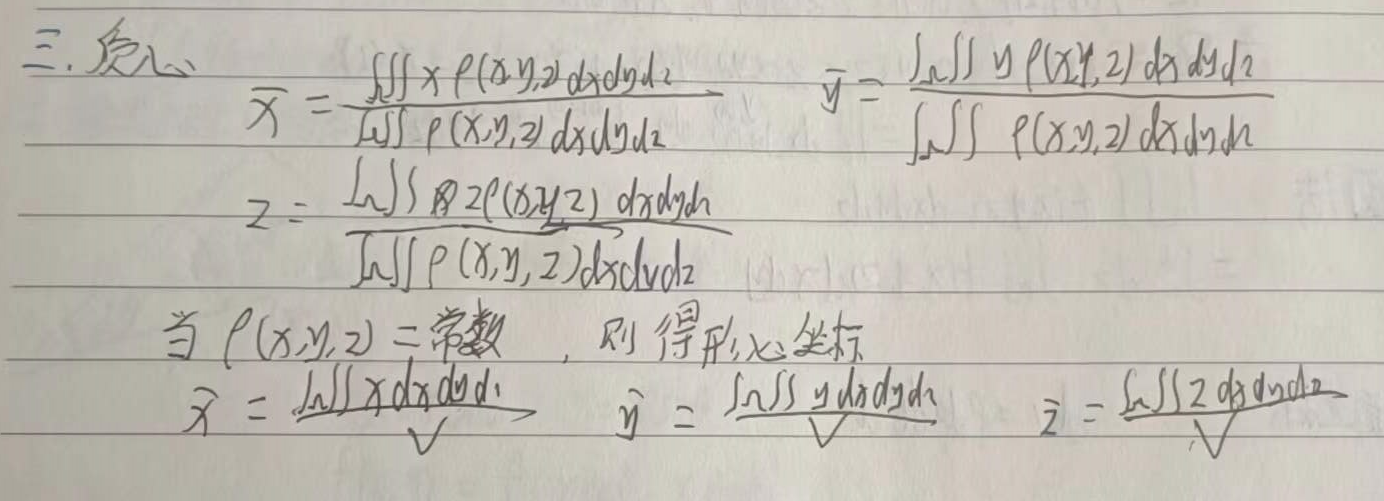 三.质心
x̄ = ∭Ω x ρ(x,y,z) dxdydz / ∭Ω ρ(x,y,z) dxdydz  ȳ = ∭Ω y ρ(x,y,z) dxdydz / ∭Ω ρ(x,y,z) dxdydz
z = ∭Ω zρ(x,y,z) dxdydz / ∭Ω ρ(x,y,z) dxdydz
当 ρ(x,y,z) = 常数 , 则得形心坐标
x̄ = ∭Ω x dxdydz / V  ȳ = ∭Ω y dxdydz / V  z̄ = ∭Ω z dxdydz / V